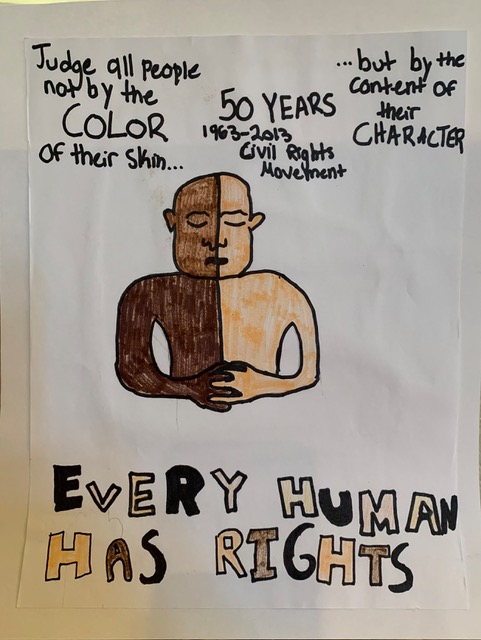 Judge all people
not by the
COLOR
Of their Skin...
50 YEARS
1963-2013
Civil Rights
Movement
...but by the
Content of
their
CHARACTER
EVERY HUMAN
HAS RIGHTS